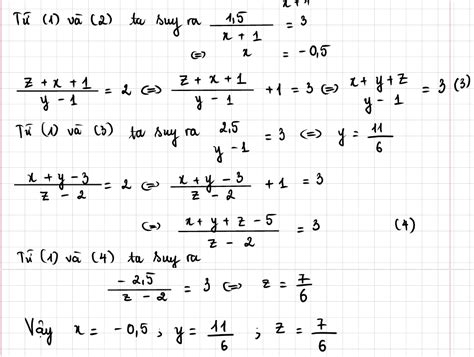 Từ (1) và (2) ta suy ra 1,5 / (x + 1) = 3
⇔ x = -0,5
(z + x + 1) / (y - 1) = 2 ⇔ (z + x + 1) / (y - 1) + 1 = 3 ⇔ (x + y + z) / (y - 1) = 3 (3)
Từ (1) và (3) ta suy ra 2,5 / (y - 1) = 3 ⇔ y = 11 / 6
(x + y - 3) / (z - 2) = 2 ⇔ (x + y - 3) / (z - 2) + 1 = 3
⇔ (x + y + z - 5) / (z - 2) = 3 (4)
Từ (1) và (4) ta suy ra
-2,5 / (z - 2) = 3 ⇔ z = 7 / 6
Vậy x = -0,5 , y = 11 / 6 ; z = 7 / 6